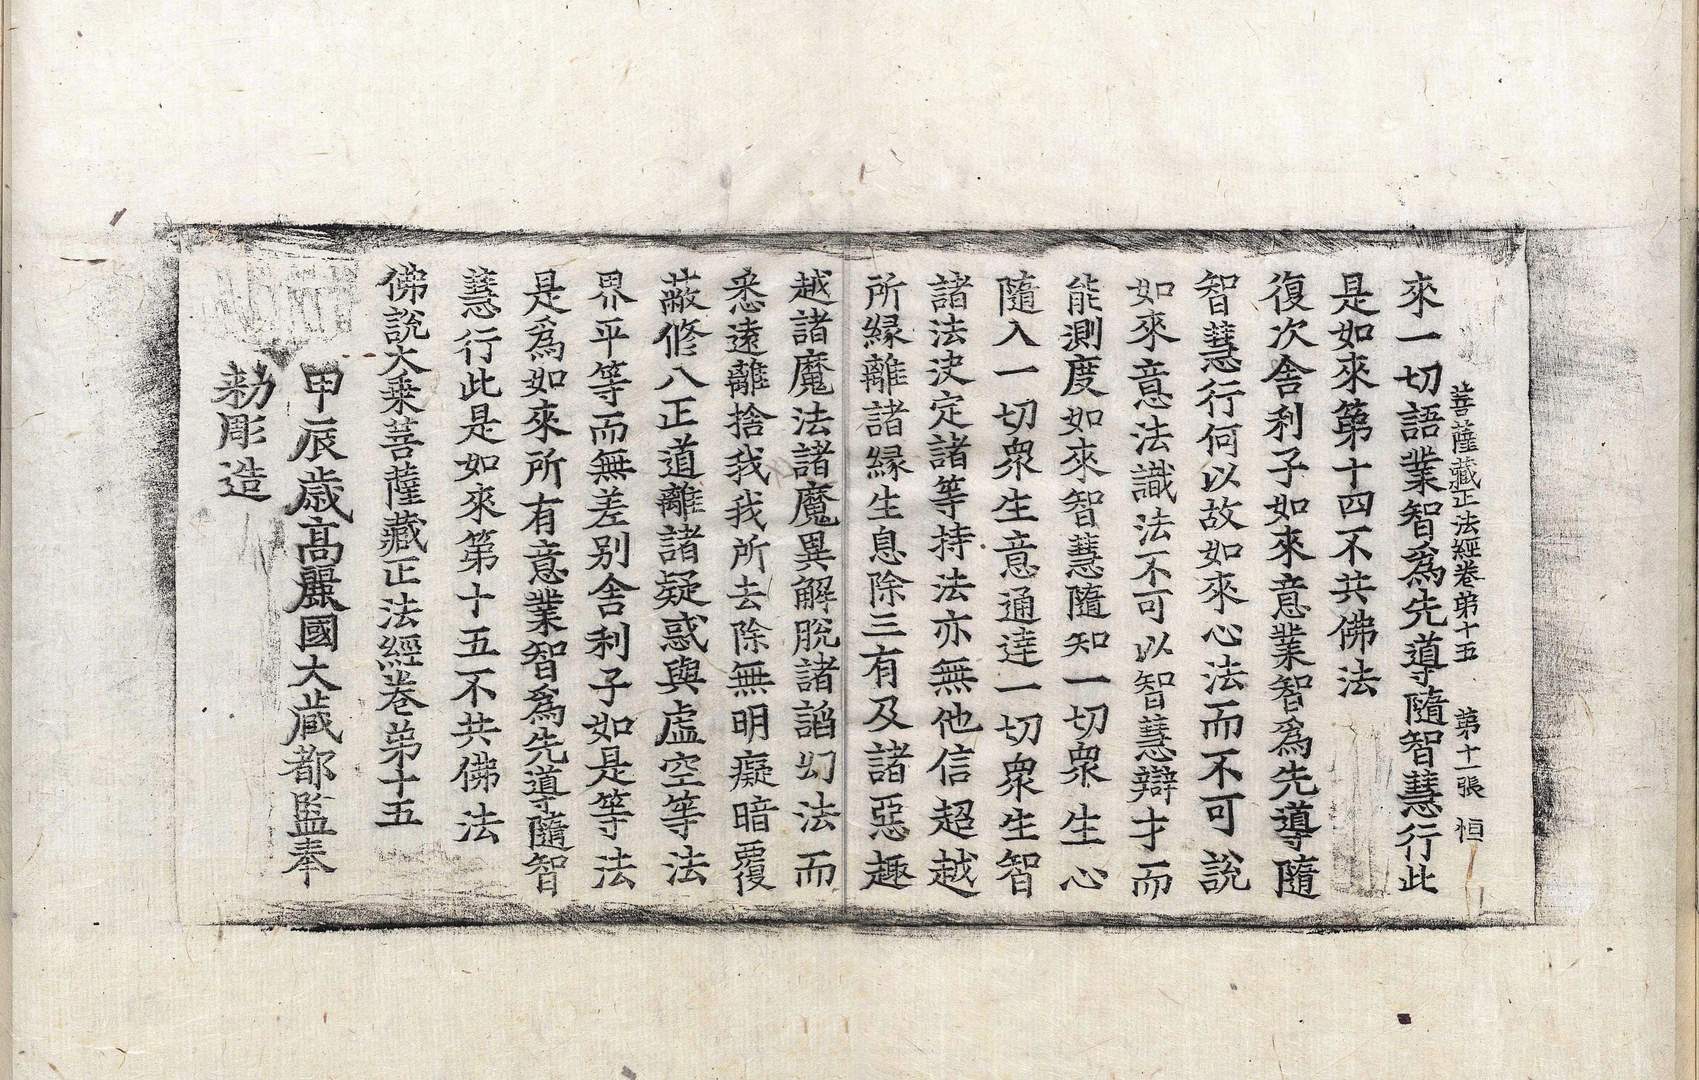 菩薩藏正法經卷第十五 第十一張 恒
來一切語業智爲先導隨智慧行此
是如來第十四不共佛法
復次舍利子如來意業智爲先導隨
智慧行何以故如來心法而不可說
如來意法識法不可以智慧辯才而
能測度如來智慧隨知一切衆生心
隨入一切衆生意通達一切衆生智
諸法決定諸等持法亦無他信超越
所緣離諸緣生息除三有及諸惡趣
越諸魔法諸魔異解脫諸謟幻法而
悉遠離捨我我所去除無明癡暗覆
蔽修八正道離諸疑惑與虛空等法
界平等而無差别舍利子如是等法
是爲如來所有意業智爲先導隨智
慧行此是如來第十五不共佛法
佛說大乗菩薩藏正法經卷第十五
甲辰歲高麗國大藏都監奉
勑彫造